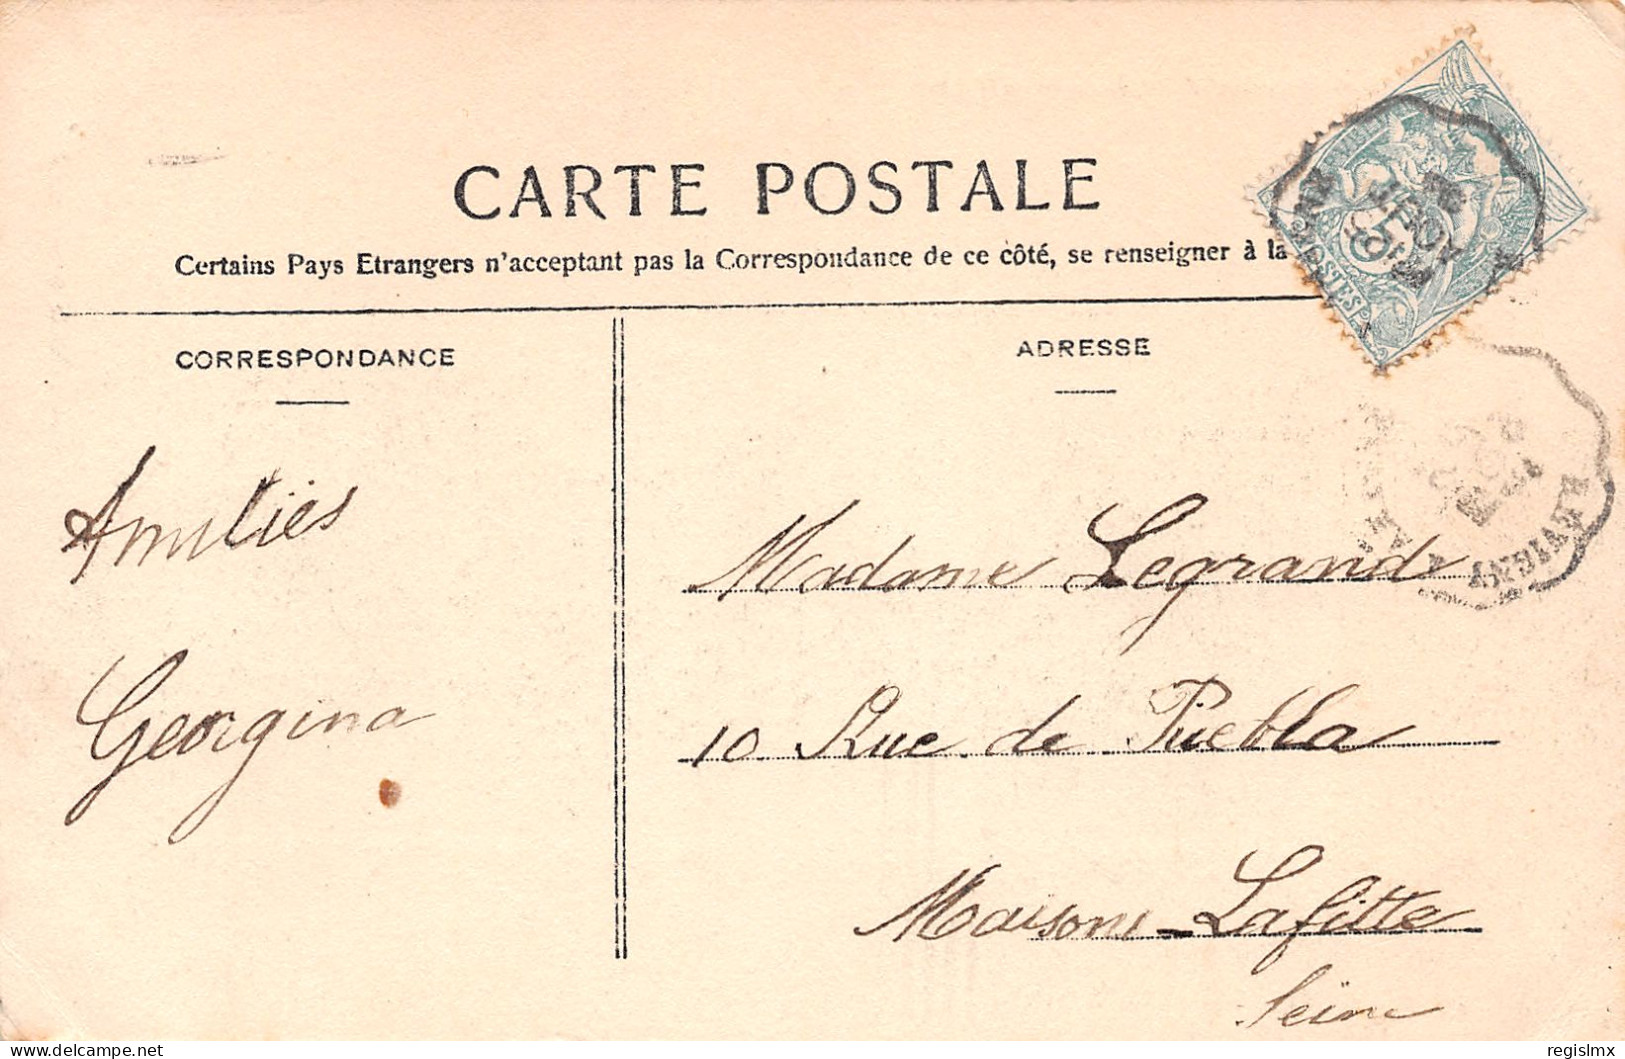 CARTE POSTALE
Certains Pays Etrangers n'acceptant pas la Correspondance de ce côté, se renseigner à la
CORRESPONDANCE
ADRESSE
Amitiés
Georgina
Madame Legrand
10 Rue de Puebla
Maisons-Lafitte
Seine
POSTES
delcampe.net
regislmx